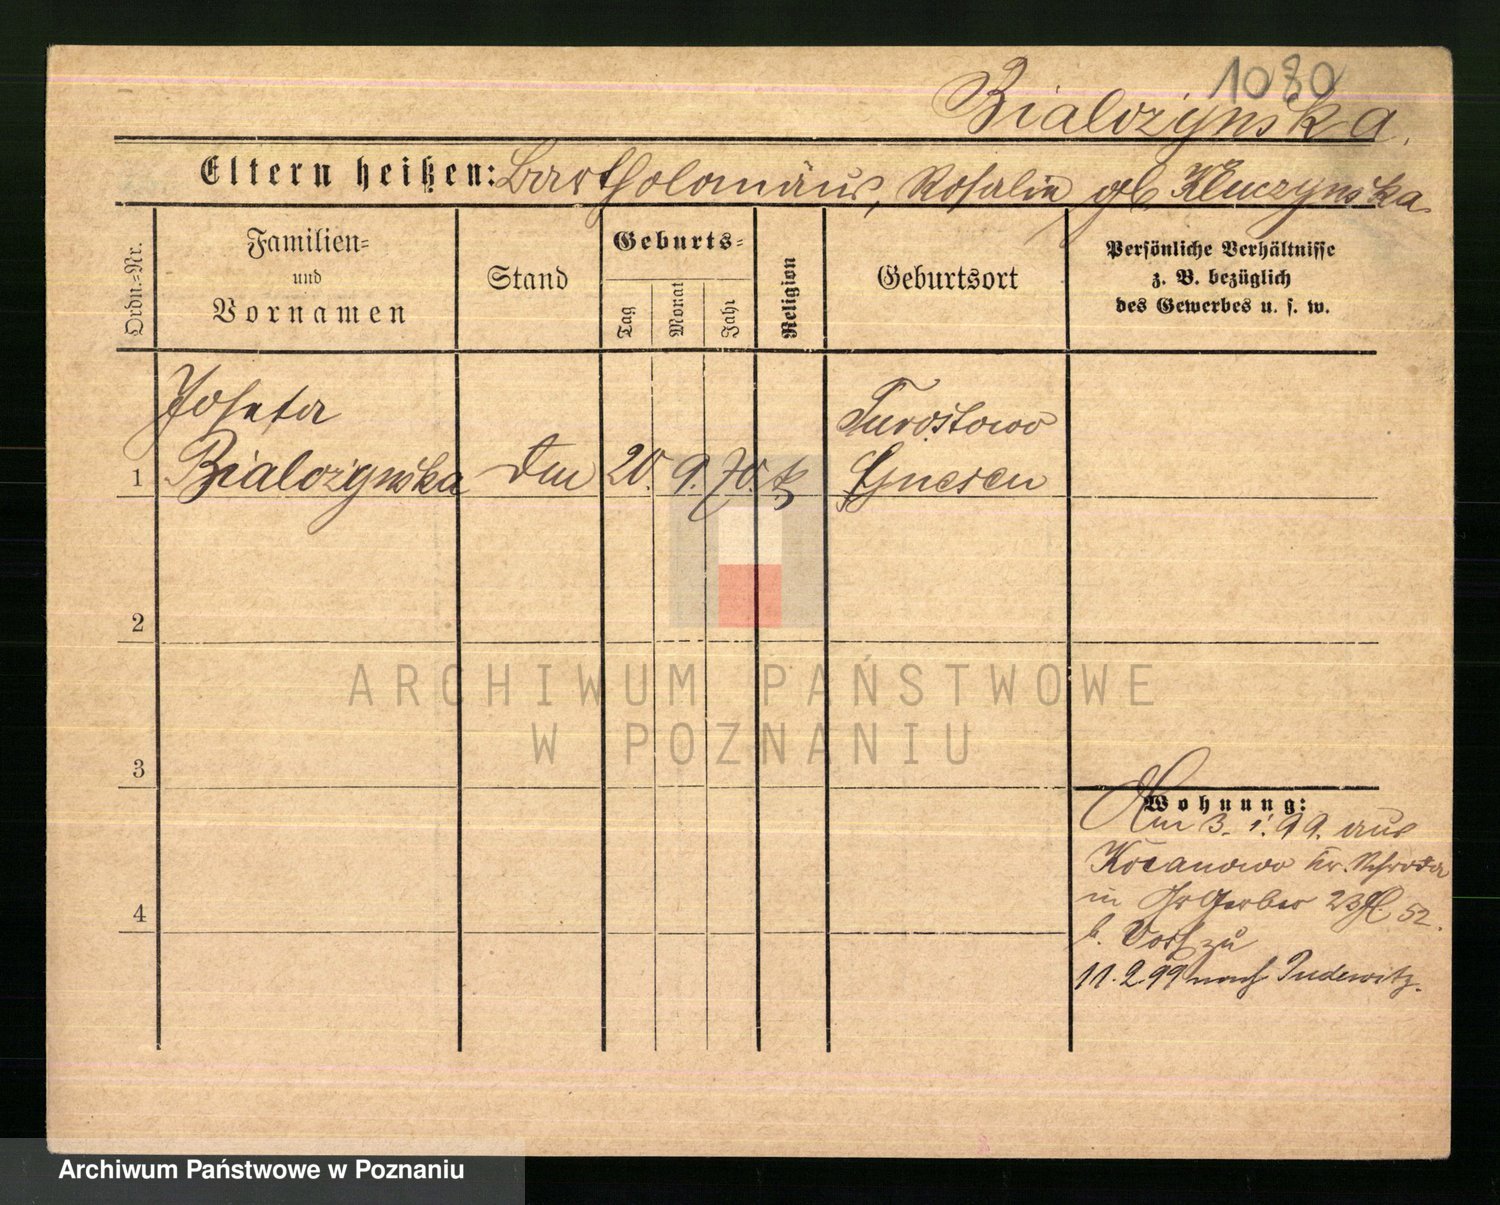 1080
Bialożynska
Eltern heißen: Bartholomäus, Rosalie gb Kluczynska
Ordn.-Nr.
Familien-
und
Vornamen
Stand
Geburts-
Tag
Monat
Jahr
Religion
Geburtsort
Persönliche Verhältnisse
z. B. bezüglich
des Gewerbes u. s. w.
Josefa
Bialożynska
1
Dm
20. 9. 70. k
Turostowo
Gnesen
2
3
4
Wohnung:
Am 3. 1. 99. aus
Kocanowo Kr. Schroda
in Gr Gerber 23 52.
b. zu
11. 2. 99 nach Pudewitz.
ARCHIWUM PAŃSTWOWE
W POZNANIU
Archiwum Państwowe w Poznaniu